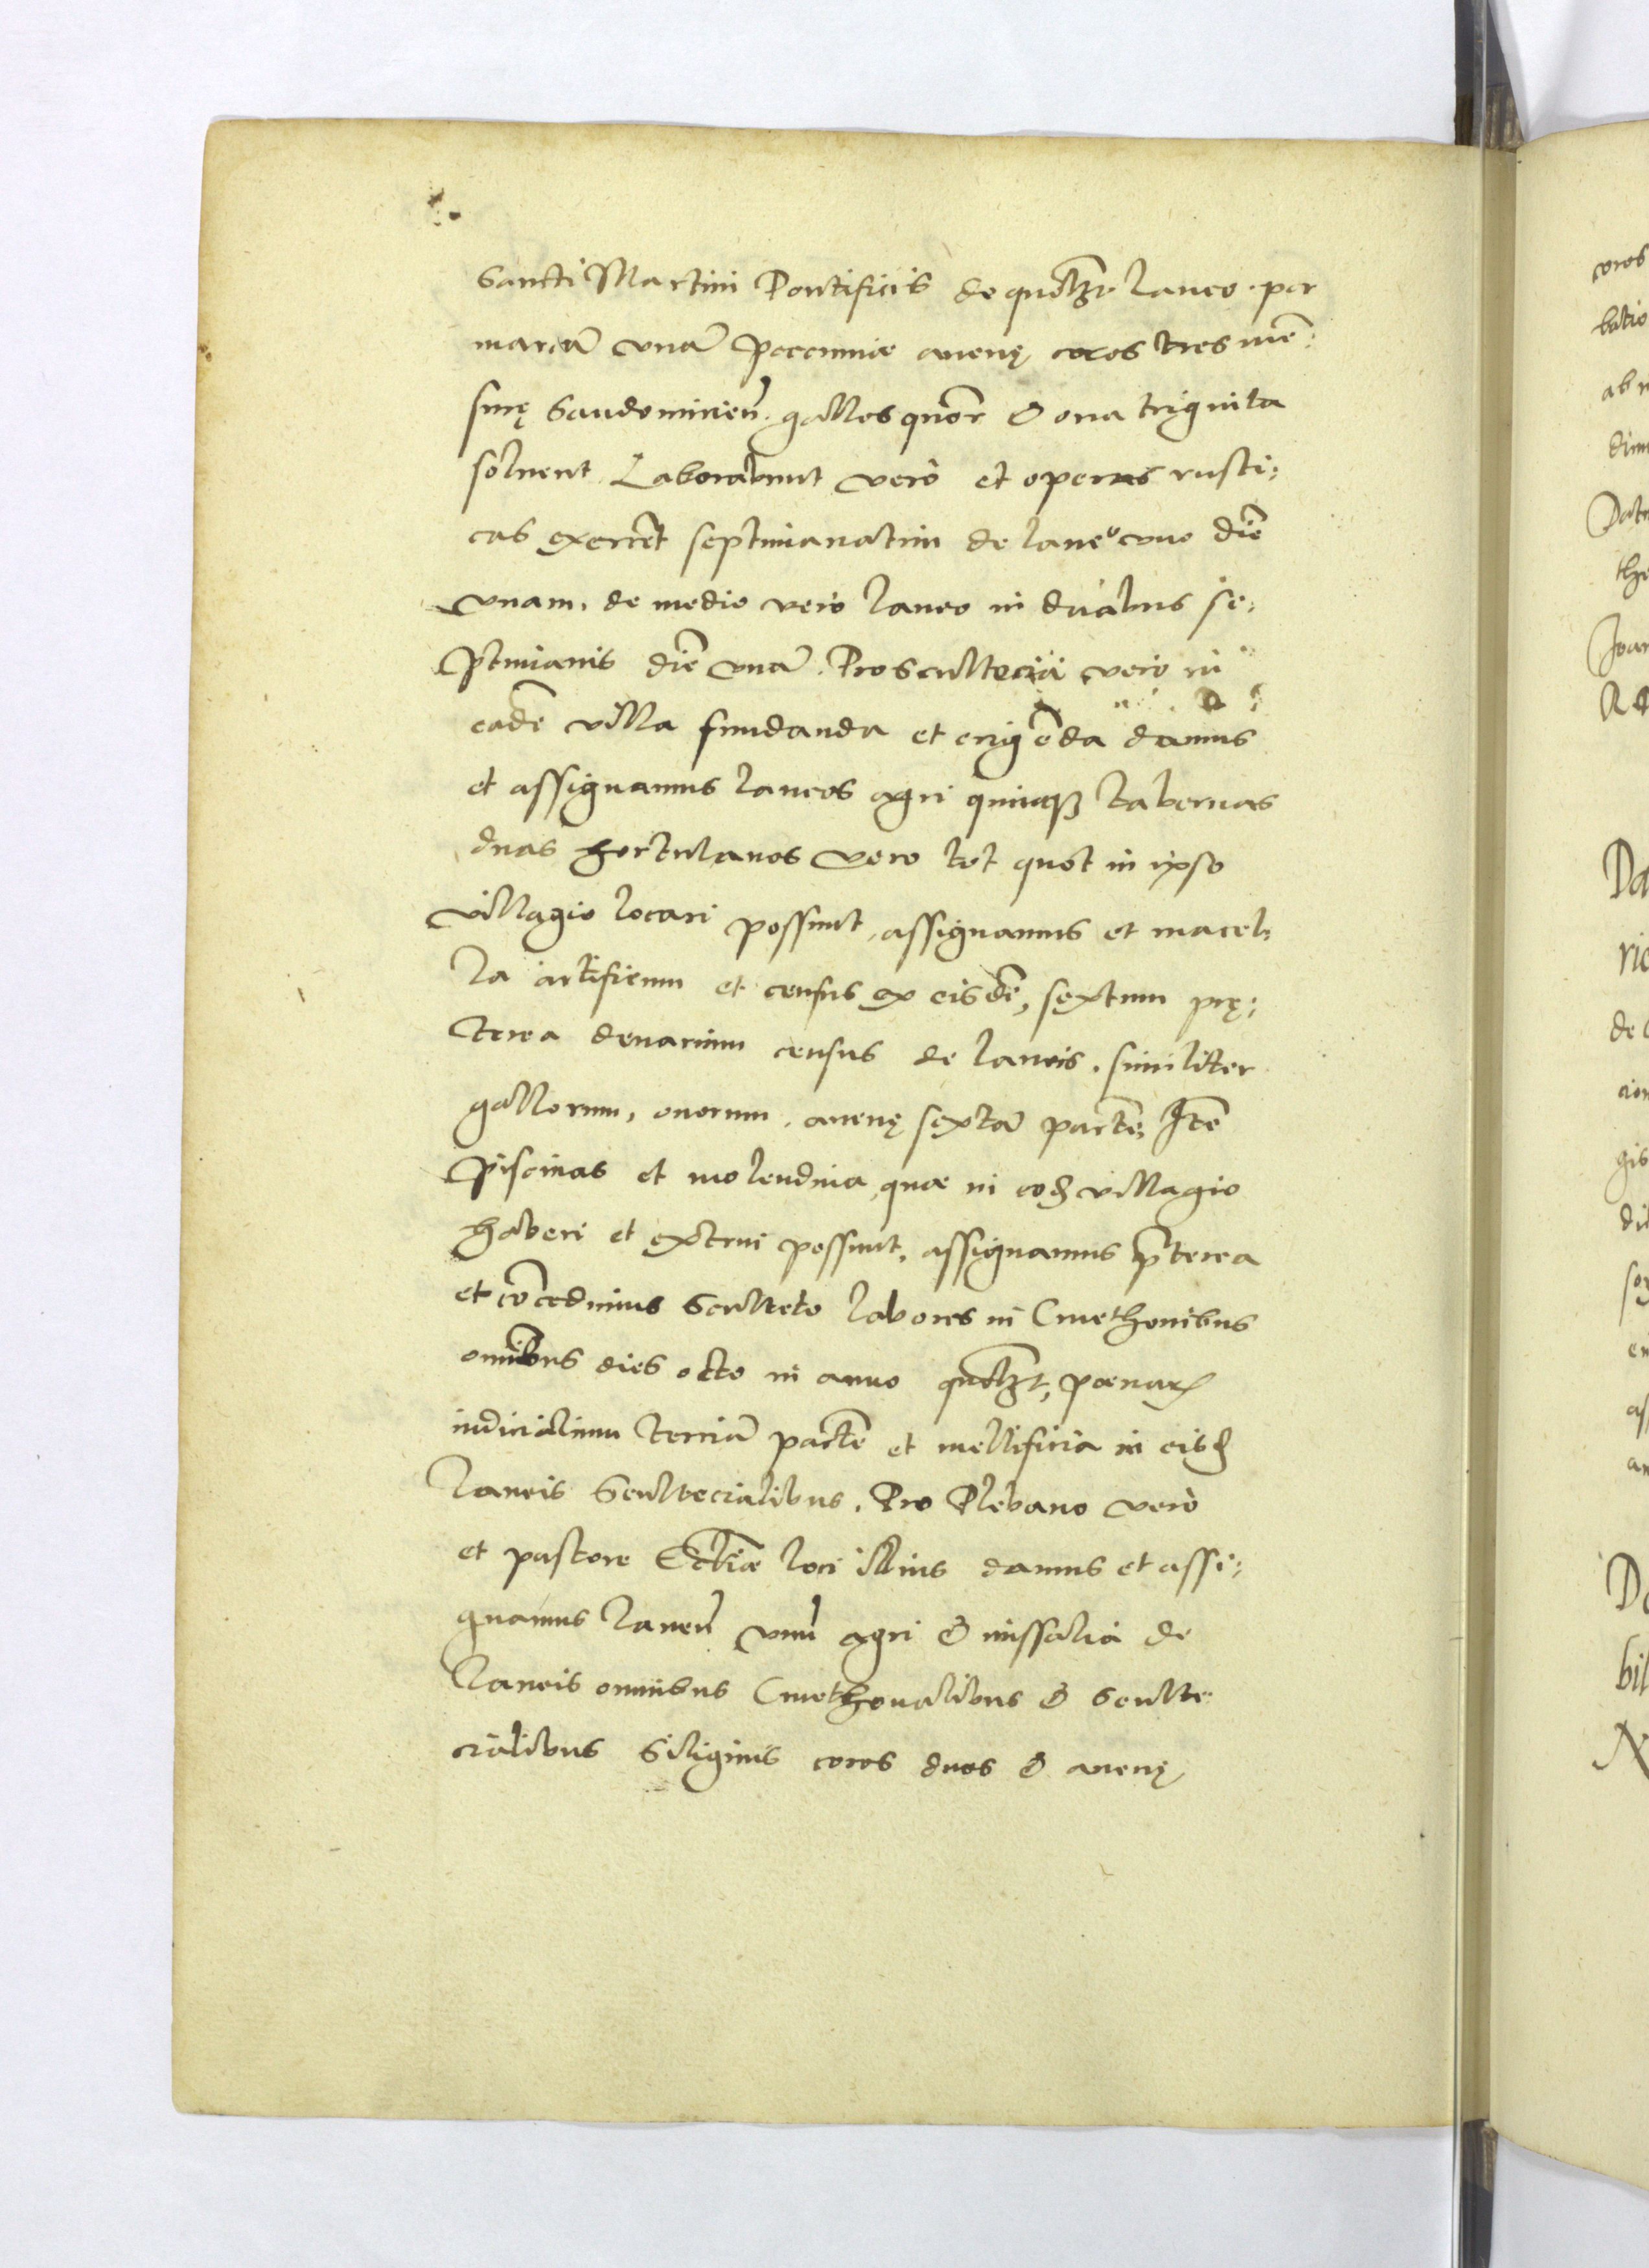 Sancti Martini Pontificis de quolibet laneo per
marcã vnã peccuniæ auenę coros tres mẽ:
surę Sandomirieñ. gallos quor & oua triginta
soluent. Laborabunt verò et operas rusti:
cas exercẽt septimanatim de laneo vno diẽ
vnam, de medio verò laneo in duabus se:
ptimanis diẽ vnã. Pro Scultecia vero in
eadẽ villa fundanda et erigẽda damus
et assignamus laneos agri quinqꝫ tabernas
duas hortulanos vero tot quot in ipso
villagio locari possunt, assignamus et macel:
la artificum et census ex eisdẽ, sextum prę:
terea denarium census de laneis. similiter
gallorum, ouorum, auenę sextã partẽ, Itẽ
piscinas et molendina, quæ in eod villagio
haberi et extrui possunt, assignamus p̃terea
et cõcedimus Sculteto labores in Cmethonibus
omnibus dies octo in anno quolibet, pœnaꝝ
iudicialium terciã partẽ et mellificia in eisd
laneis Scultecialibus. Pro Plebano verò
et pastore Ecclĩæ loci illius damus et assi:
gnamus laneũ vnũ agri & missalia de
laneis omnibus Cmethonalibus & Sculte
cialibus Siliginis coros duos & auenę
coros
batio
ab
Da
de
gis